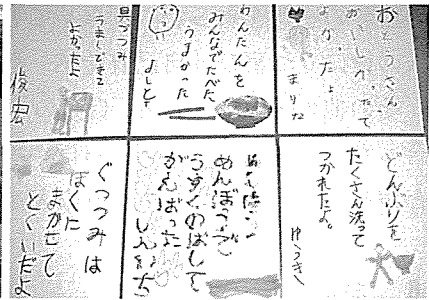 おとうさん
おいしかって
よかったよ
まりな
わんたんを
みんなでたべた
うまかった
よしと
具づつみ
うまくできて
よかったよ
俊宏
どんぶりを
たくさん洗って
つかれたよ。
ゆうき
めんぼうで
うすくのばして
がんばった
ぐつつみは
ぼくに
まかせて
とくいだよ